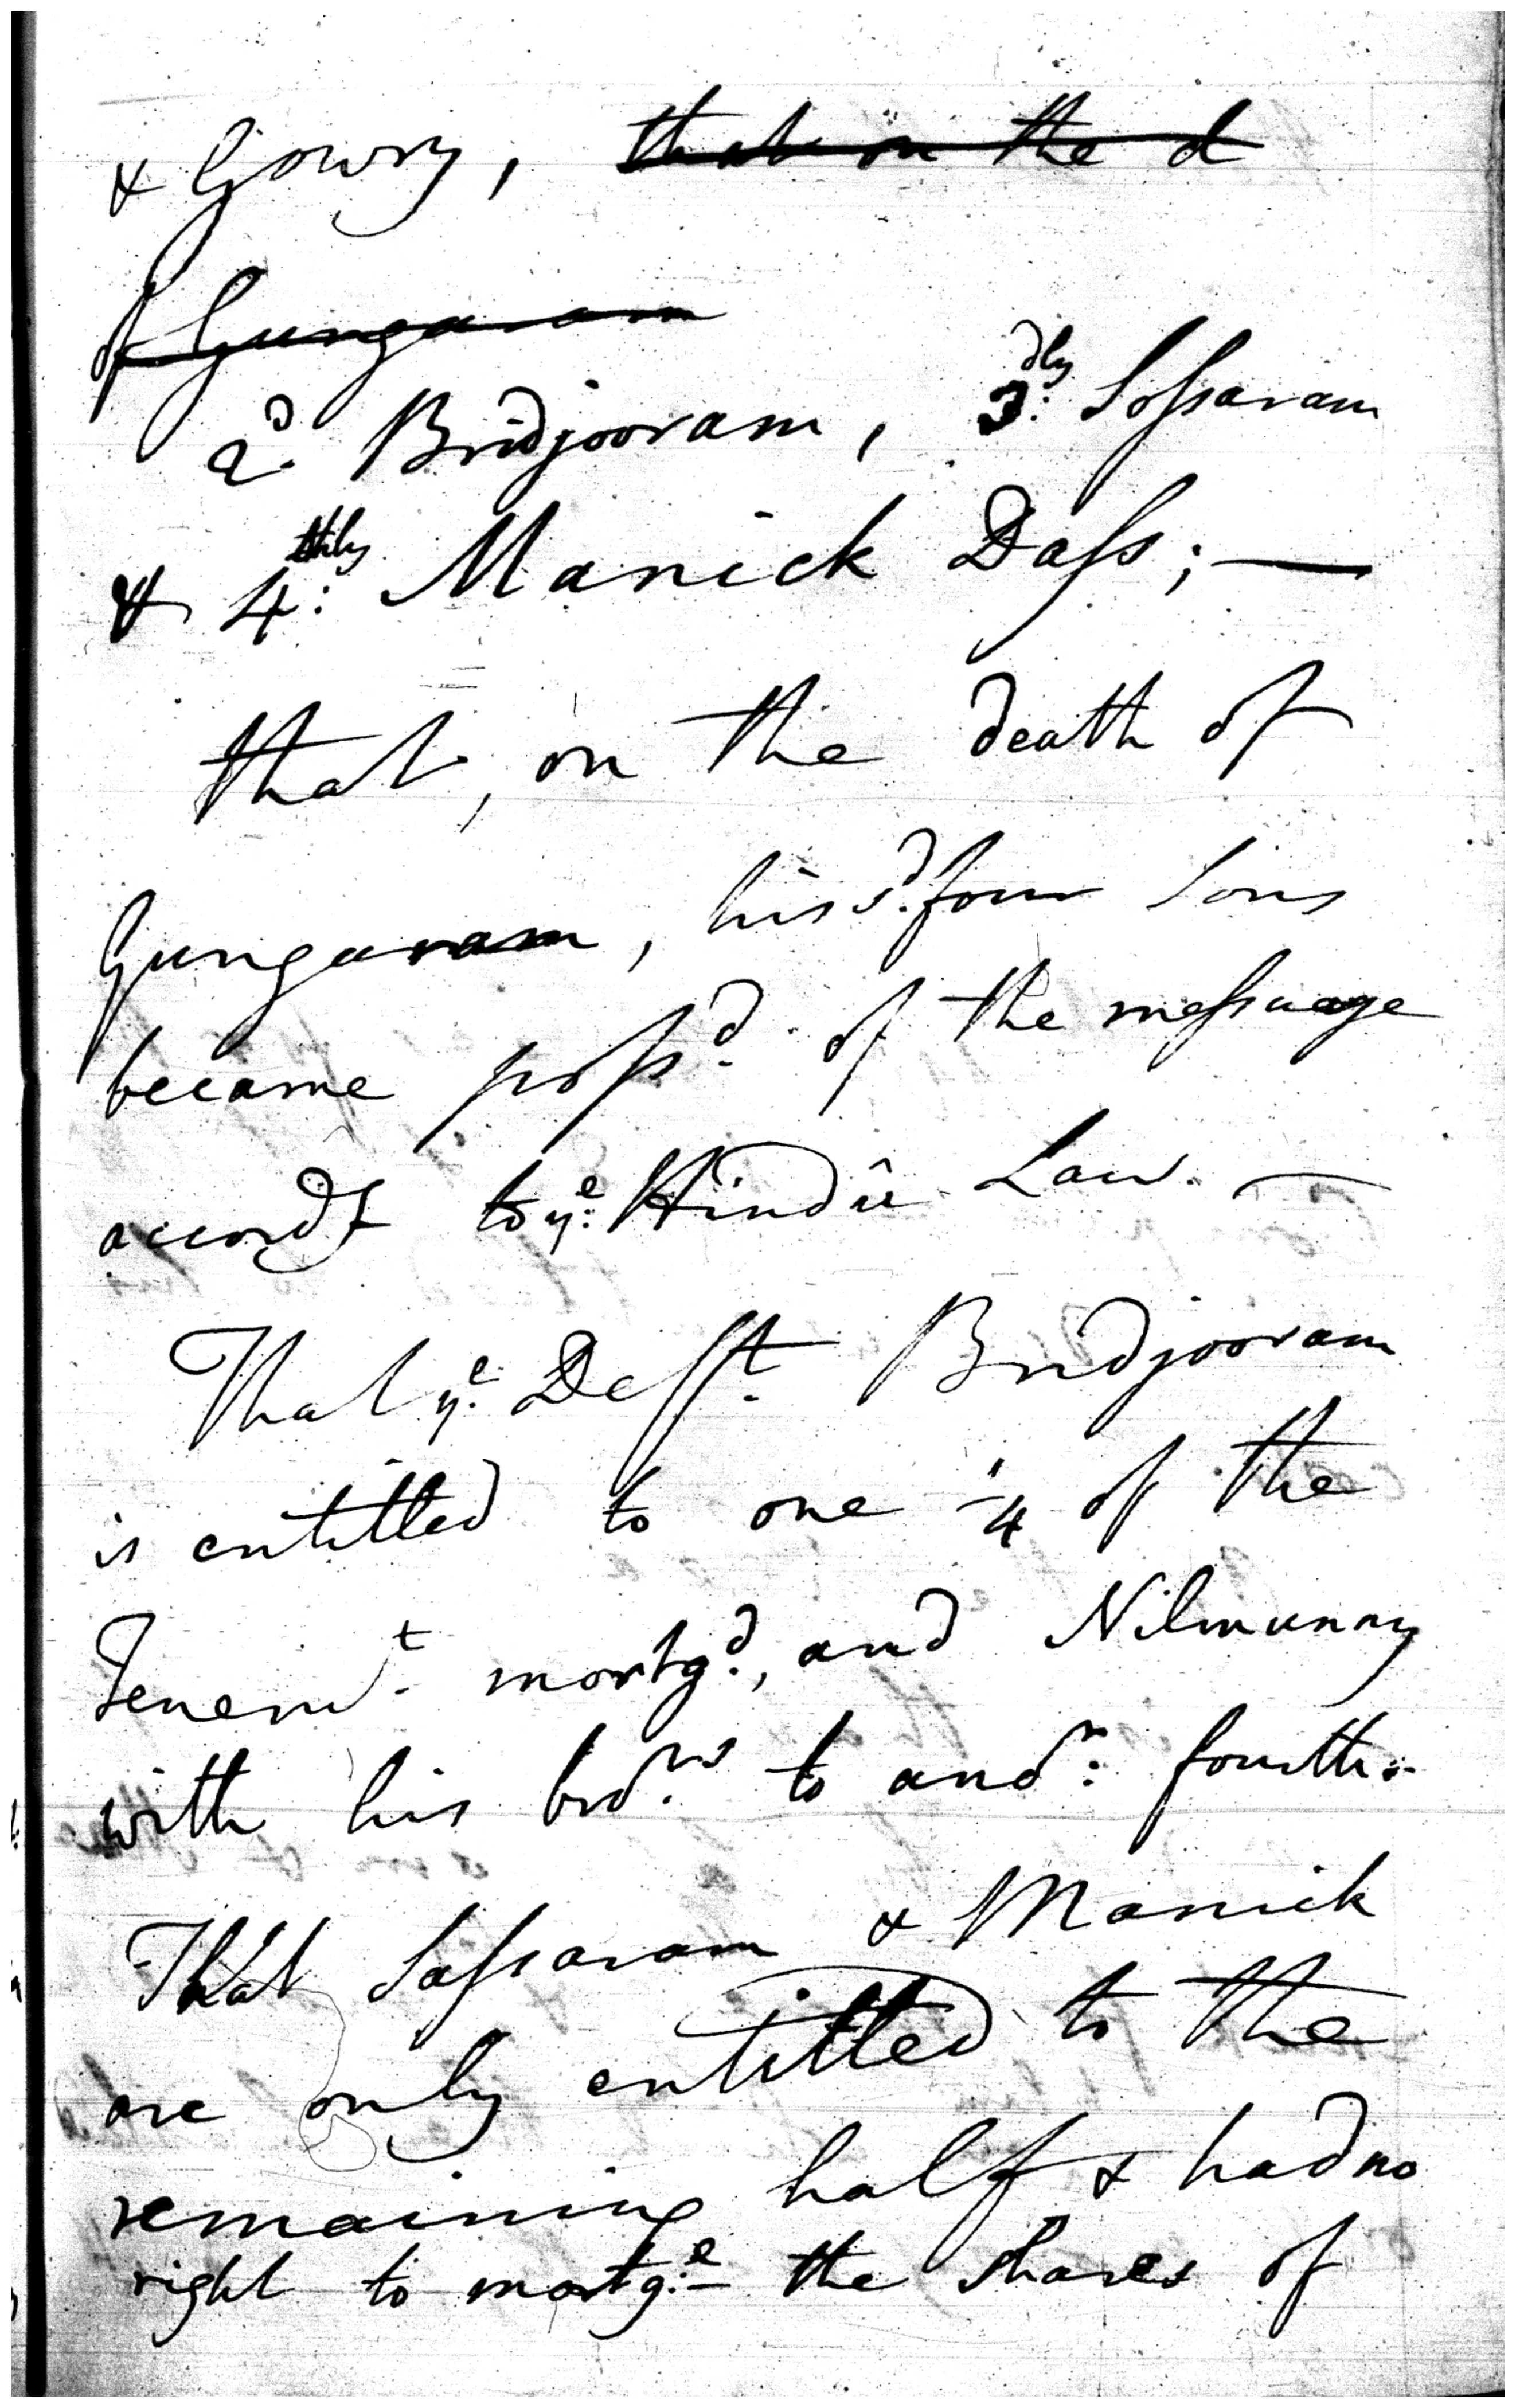 & Gowry, that on the d
of Gungaram
2.d Bridjooram, 3:dly Sossaram
& 4:thly Manick Dass; —
that, on the death of
Gungaram, his s.d four Sons
became poss.d of the messuage
accordg to y:e Hindû Law. —
That y.e Deft. Bridjooram
is entitled to one 1/4 of the
Tenem.t mortg.d, and Nilmunny
with his bro.rs to ano:r fourth.
That Sassaram & Manick
are only entitled to the
remaining half & had no
right to mortg:e the shares of